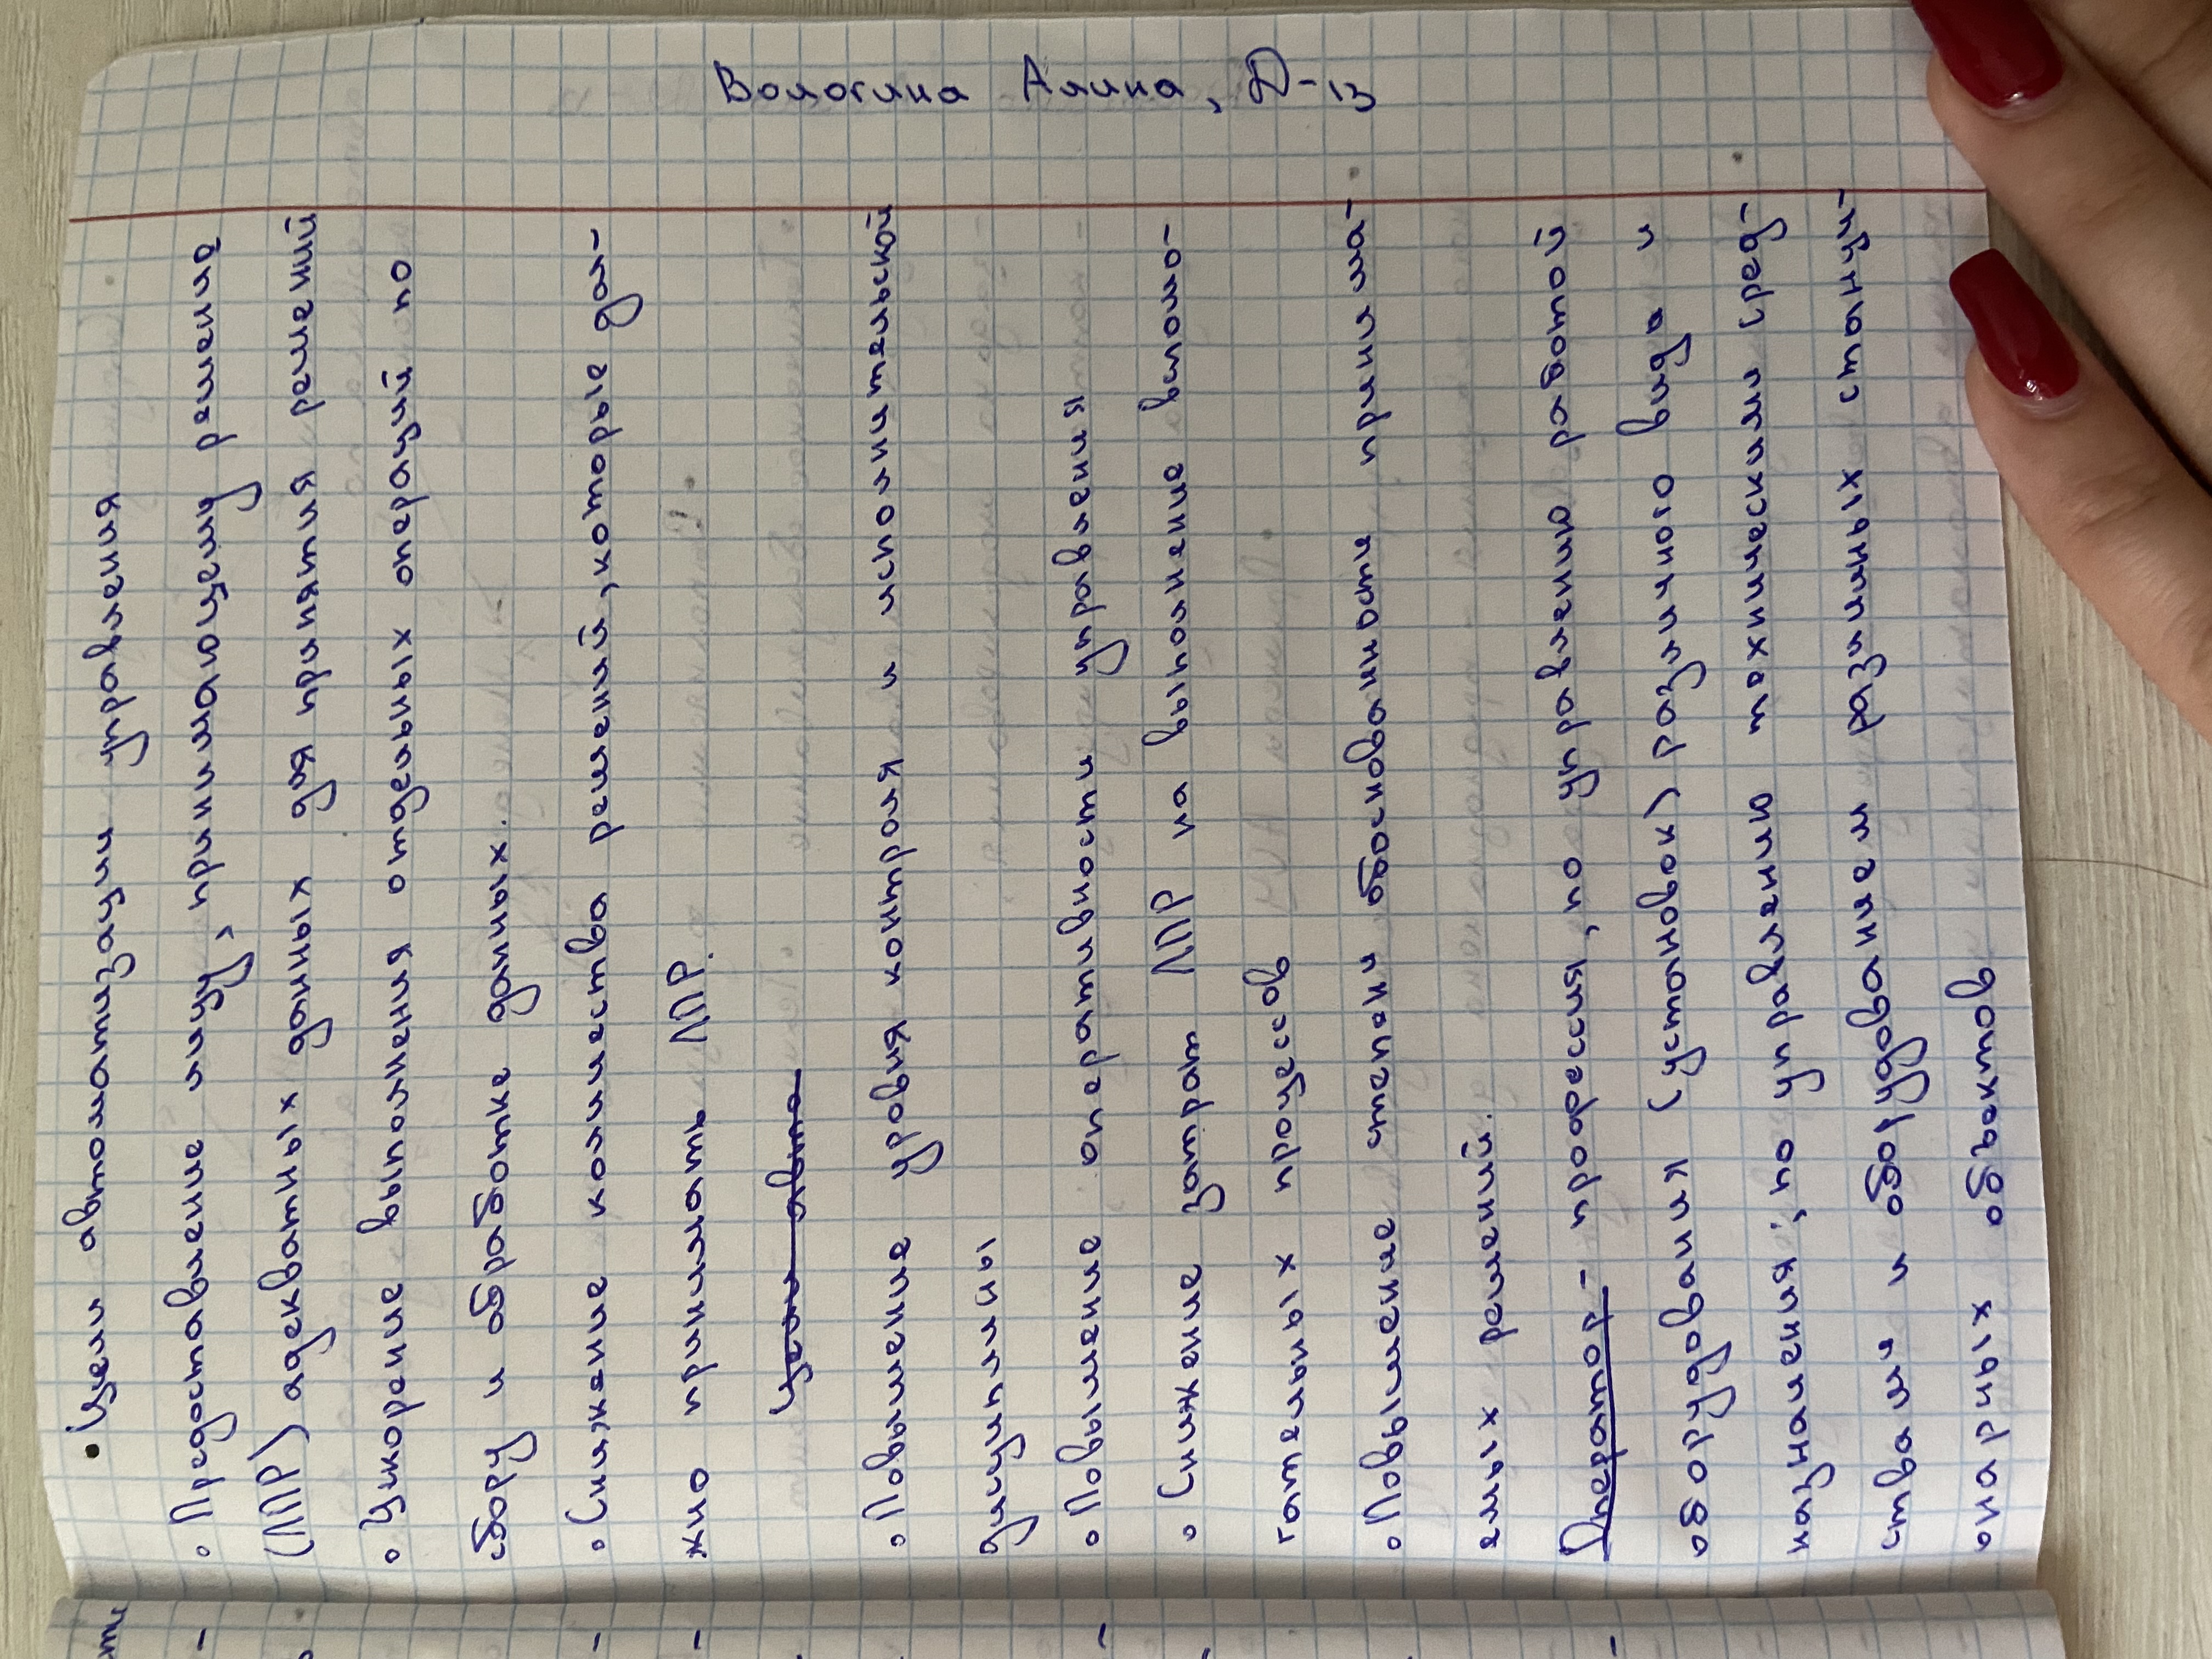 Вологина Алина, Д-13
• Цели автоматизации управления
• Предоставление лицу, принимающему решение
(ЛПР) адекватных данных для принятия решений
• Ускорение выполнения отдельных операций по
сбору и обработке данных.
• Снижение количества решений, которые дол-
жно принимать ЛПР.
Цели авто
• Повышение уровня контроля и исполнительской
дисциплины
• Повышение оперативности управления
• Снижение затрат ЛПР на выполнение вспомо-
гательных процессов
• Повышение степени обоснованности принима-
емых решений.
Оператор - профессия, по управлению работой
оборудования (установок) различного вида и
назначения, по управлению техническими сред-
ствами и оборудованием различных стацы-
онарных объектов